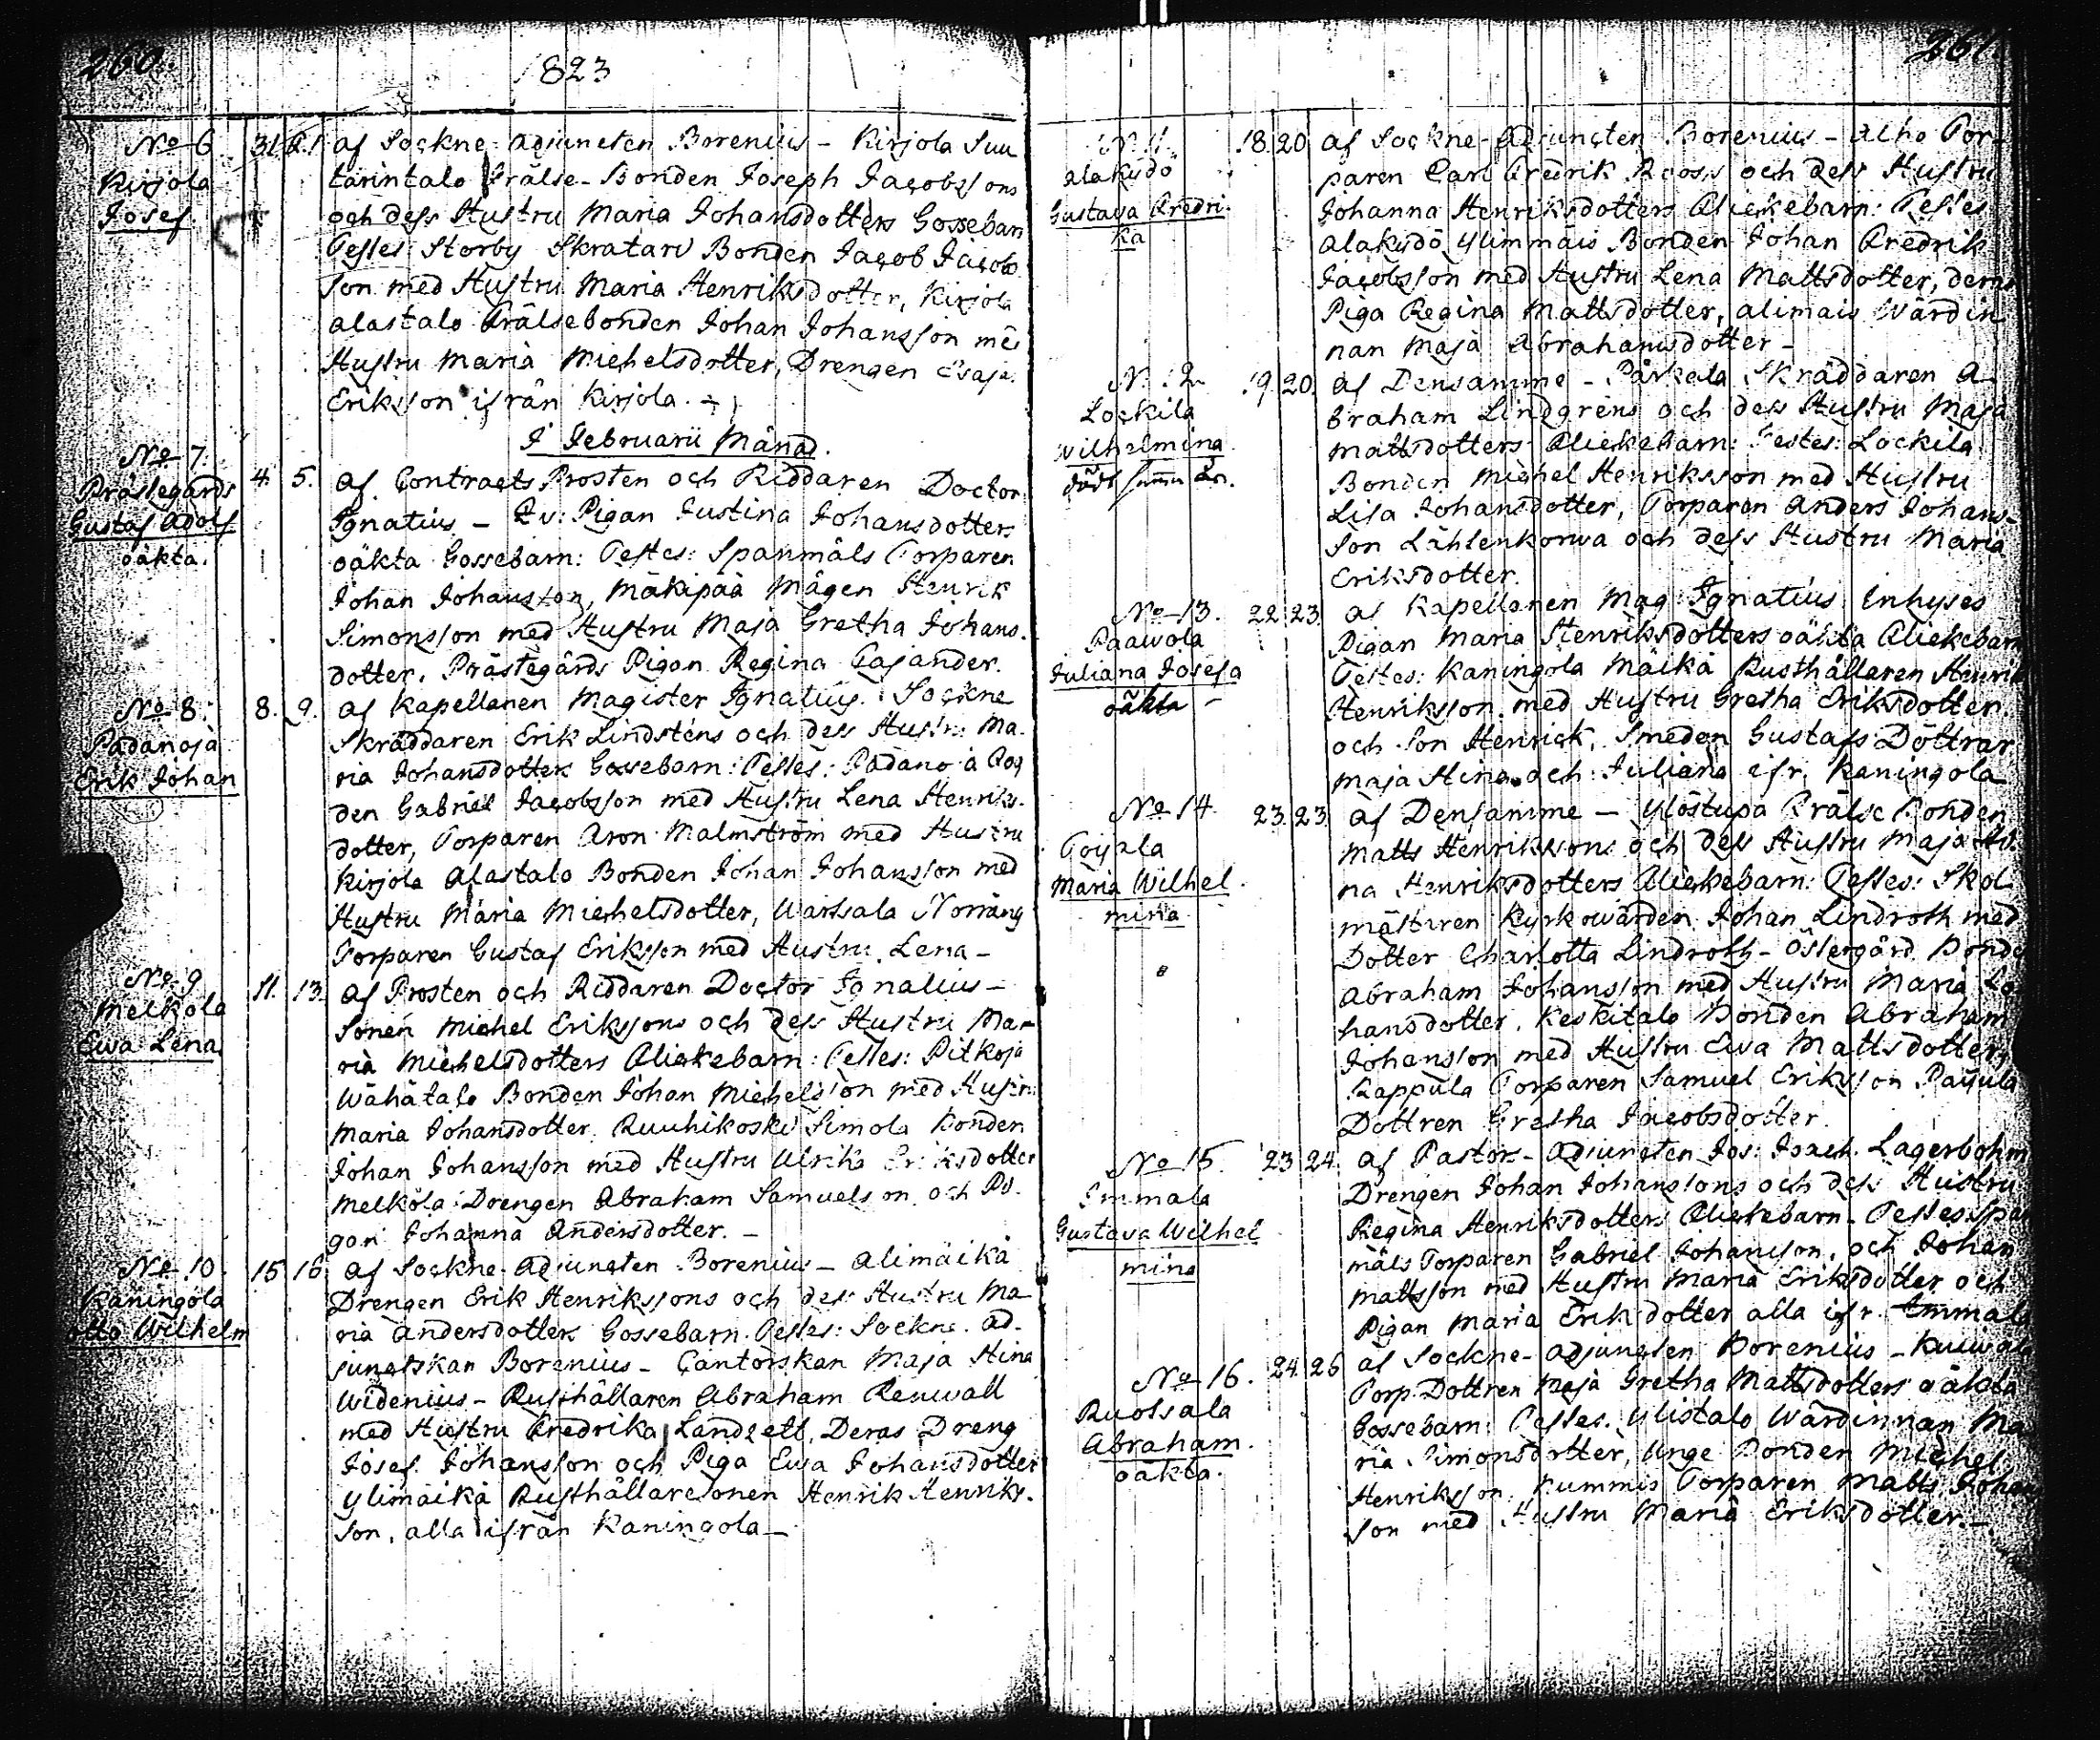 260.
1823
No 6
Kirjola
Josef
31. 2.
af Sockne-Adjuncten Borenius - Kirjola Suu
tarintalo Frälse-Bonden Joseph Jacobssons
och dess Hustru Maria Johansdotters Gossebarn
Testes Storby Skratari Bonden Jacob Jacobs
son med Hustru Maria Henriksdotter, Kirjola
alastalo Frälsebonden Johan Johansson med
Hustru Maria Michelsdotter, Drengen Esaja
Eriksson ifrån Kirjola. -
I Februarii Månad.
No 7.
Prästegårds
Gustaf Adolf
oäkta.
4. 5.
af Contracts Prosten och Riddaren Doctor
Ignatius - Qv: Pigan Justina Johansdotters
oäkta Gossebarn: Testes: Spanmåls Torparen
Johan Johansson, Mäkipää Mågen Henrik
Simonsson med Hustru Maja Gretha Johans.
dotter. Prästegårds Pigan Regina Cajander.
No 8.
Padanoja
Erik Johan
8. 9.
af Kapellanen Magister Ignatius. Sockne
Skräddaren Erik Lindsténs och dess Hustru Ma.
ria Johansdotters Gossebarn: Testes: Padanoja Bon
den Gabriel Jacobsson med Hustru Lena Henriks.
dotter, Torparen Aron Malmström med Hustru
Kirjola Alastalo Bonden Johan Johansson med
Hustru Maria Michelsdotter, Warssala Norräng
Torparen Gustaf Eriksson med Hustru Lena -
No 9
Melkola
Ewa Lena
11. 13.
af Prosten och Riddaren Doctor Ignatius -
Sonen Michel Erikssons och dess Hustru Ma-
ria Michelsdotters Flickebarn: Testes: Pitkoja
Wähätalo Bonden Johan Michelsson med Hustru
Maria Johansdotter, Ruuhikoski Simola Bonden
Johan Johansson med Hustru Ulrika Eriksdotter
Melkola Drengen Abraham Samuelsson och Pi.
gan Johanna Andersdotter. -
No 10.
Kaningola
Otto Wilhelm
15 16
af Sockne-Adjuncten Borenius - Alimäikä
Drengen Erik Henrikssons och dess Hustru Ma
ria Andersdotters Gossebarn. Testes: Sockne-Ad.
junctskan Borenius - Cantorskan Maja Stina
Widenius - Rusthållaren Abraham Renwall
med Hustru Fredrika Landzett, Deras Dreng
Josef Johansson och Piga Ewa Johansdotter
Ylimäikä Rusthållaresonen Henrik Henriks.
son, alla ifrån Kaningola -
261.
N. 11.
Alakydö
Gustava Fredri-
ka
18. 20
af Sockne-Adjuncten Borenius - Alho Tor-
paren Carl Fredrik Rooss och dess Hustru
Johanna Henriksdotters Flickebarn: Testes
Alakydö Ylimmäis Bonden Johan Fredrik
Jacobsson med Hustru Lena Mattsdotter, deras
Piga Regina Mattsdotter, Alimais Wärdin
nan Maja Abrahamsdotter -
N. 12
Lockila
Wilhelmina.
död samma år.
19. 20.
af Densamme - Pärkola Skräddaren A-
braham Lindgrens och dess Hustru Maja
Mattsdotters Flickebarn: Testes: Lockila
Bonden Michel Henriksson med Hustru
Lisa Johansdotter, Torparen Anders Johans-
son Lähtenkorwa och dess Hustru Maria
Eriksdotter.
No 13.
Paawola
Juliana Josefa
oäkta -
22. 23.
af Kapellanen Mag: Ignatius, Inhyses
Pigan Maria Henriksdotters oäkta Flickebarn
Testes: Kaningola Mäikä Rusthållaren Henrik
Henriksson med Hustru Gretha Eriksdotter
och Son Henrick, Smeden Gustafs Döttrar
Maja Stina och Juliana ifr. Kaningola
No 14.
Toijala
Maria Wilhel
mina
23. 23.
af Densamme - Ylöstupa Frälse Bonden
Matts Henrikssons och dess Hustru Maja Sti.
na Henriksdotters Flickebarn: Testes: Skol
mästaren Kyrkowärden Johan Lindroth med
Dotter Charlotta Lindroth - Östergård Bonde
Abraham Johansson med Hustru Maria Jo
hansdotter. Keskitalo Bonden Abraham
Johansson med Hustru Ewa Mattsdotter,
Kappula Torparen Samuel Eriksson Paijula
Dottren Gretha Jacobsdotter.
No 15.
Immala
Gustava Wilhel
mina
23 24
af Pastors-Adjuncten Jos: Joach. Lagerbohm
Drengen Johan Johanssons och dess Hustru
Regina Henriksdotters Flickebarn - Testes Span
måls Torparen Gabriel Johansson, och Johan
Mattsson med Hustru Maria Eriksdotter och
Pigan Maria Eriksdotter alla ifr. Immala
No 16.
Ruotsala
Abraham.
oäkta.
24. 26
af Sockne-Adjuncten Borenius - Kuiwala
Torp. Dottren Maja Gretha Mattsdotters oäkta
Gossebarn: Testes. Ylistalo Wärdinnan Ma
ria Simonsdotter, Unge Bonden Michel
Henriksson, Kummis Torparen Matts Johans
son med Hustru Maria Eriksdotter. -